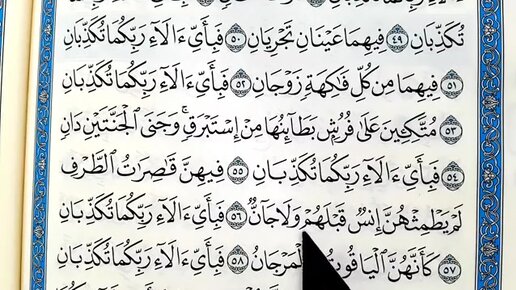 تُكَذِّبَانِ ٤٩ فِيهِمَا عَيْنَانِ تَجْرِيَانِ ٥٠ فَبِأَيِّ ءَالَآءِ رَبِّكُمَا تُكَذِّبَانِ
٥١ فِيهِمَا مِن كُلِّ فَٰكِهَةٍ زَوْجَانِ ٥٢ فَبِأَيِّ ءَالَآءِ رَبِّكُمَا تُكَذِّبَانِ
٥٣ مُتَّكِـِٔينَ عَلَىٰ فُرُشٍۭ بَطَآئِنُهَا مِنْ إِسْتَبْرَقٍ ۚ وَجَنَى ٱلْجَنَّتَيْنِ دَانٍ
٥٤ فَبِأَيِّ ءَالَآءِ رَبِّكُمَا تُكَذِّبَانِ ٥٥ فِيهِنَّ قَٰصِرَٰتُ ٱلطَّرْفِ
لَمْ يَطْمِثْهُنَّ إِنسٌ قَبْلَهُمْ وَلَا جَآنٌّ ٥٦ فَبِأَيِّ ءَالَآءِ رَبِّكُمَا تُكَذِّبَانِ
٥٧ كَأَنَّهُنَّ ٱلْيَاقُوتُ لْمَرْجَانُ ٥٨ فَبِأَيِّ ءَالَآءِ رَبِّكُمَا تُكَذِّبَانِ